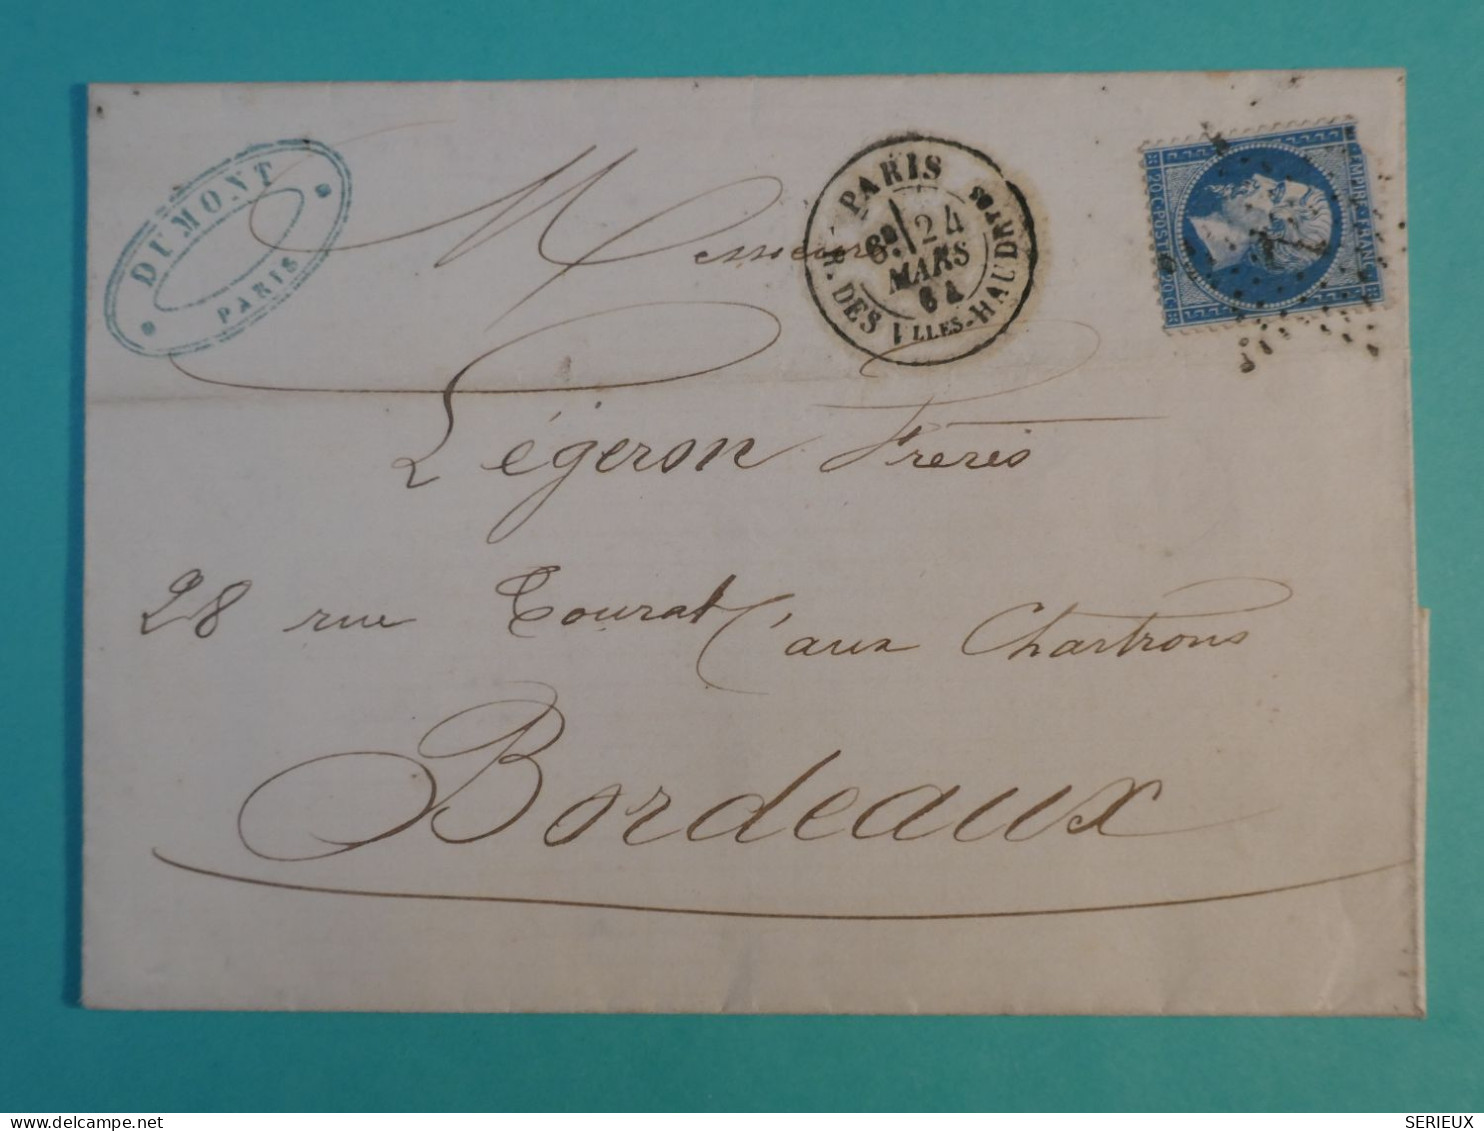 DUMONT
PARIS
PARIS
R. DES VLLES-HAUDRTTES
6E 24
MARS
64
EMPIRE FRANC
20 C POSTES 20 C
Messieurs
Légeron Frères
28 rue Tourat (aux Chartrons
Bordeaux
delcampe.net
SERIEUX